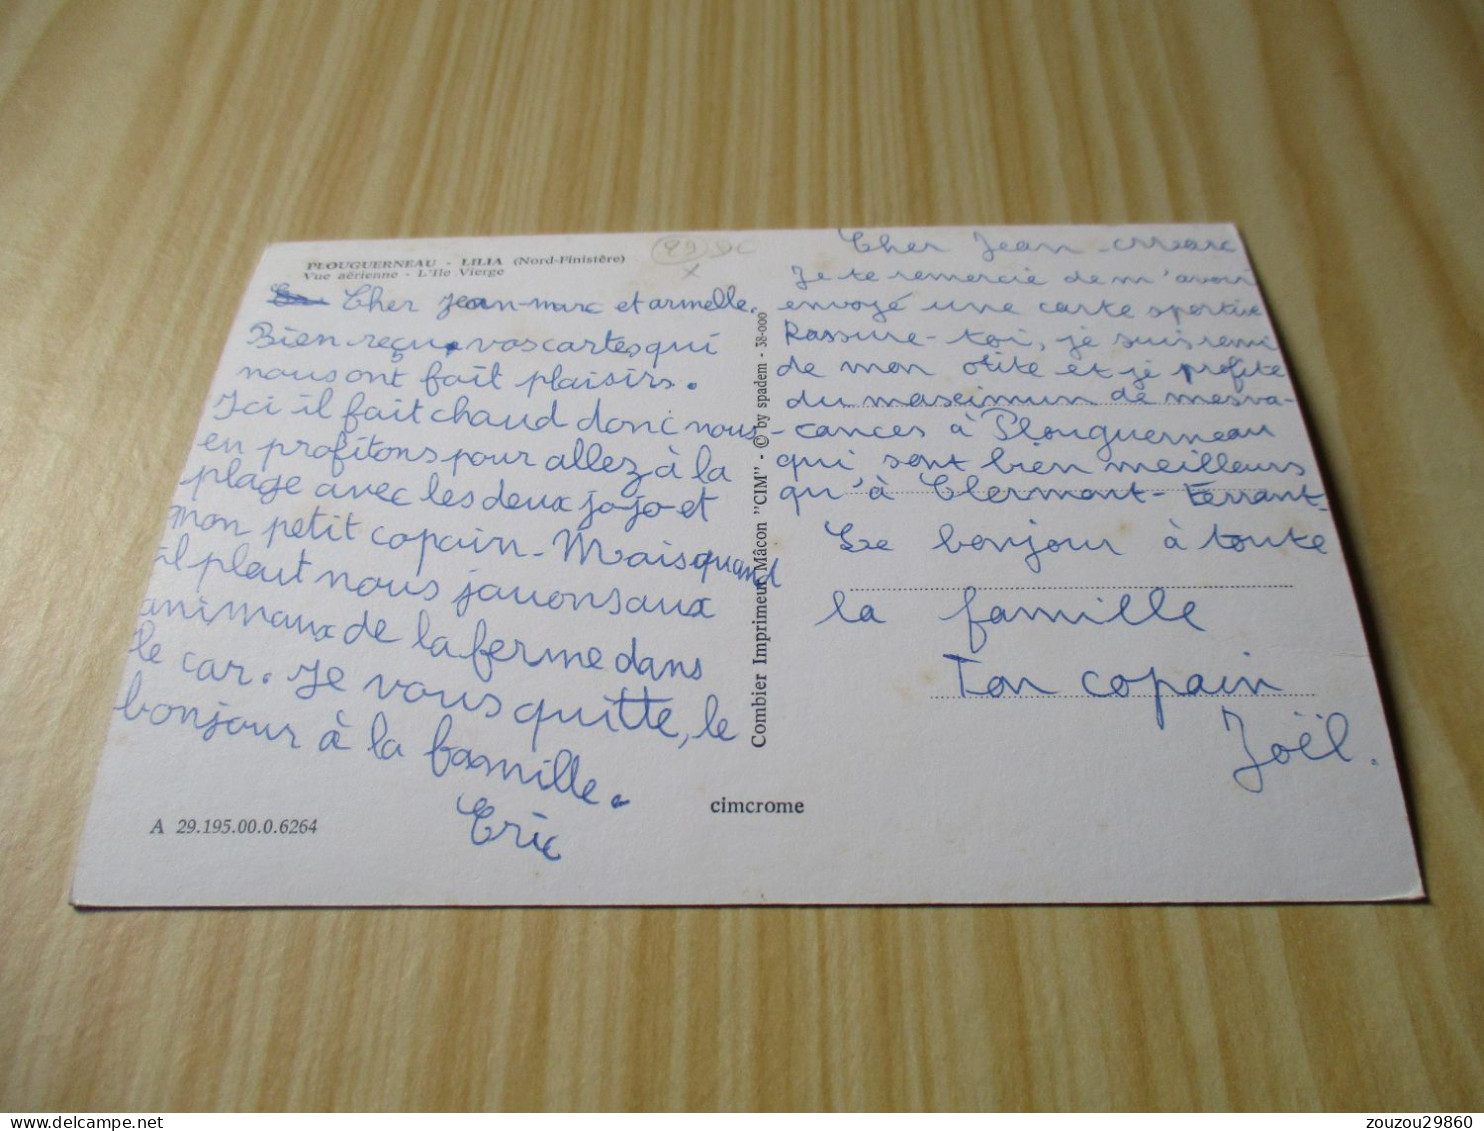 PLOUGUERNEAU - LILIA (Nord-Finistère)
Vue aérienne - L'Ile Vierge
29
Cher jean-marc et armelle.
Bien reçu vos cartes qui
nous ont fait plaisirs.
Ici il fait chaud donc nous
en profitons pour allez à la
plage avec les deux jo-jo et
mon petit copain - Mais quand
il pleut nous jouons aux
animaux de la ferme dans
le car. Je vous quitte, le
bonjour à la famille.
Eric
A 29.195.00.0.6264
Combier Imprimeur Mâcon "CIM" - © by spadem - 38-000
cimcrome
Cher Jean-Marc
Je te remercie de m'avoir
envoyé une carte sportive
Rassure-toi, je suis remi
de mon otite et je profite
du maximun de mes va-
-cances à Plouguerneau
qui sont bien meilleurs
qu'à Clermont-Ferrant.
Le bonjour à toute
la famille
Ton copain
Joël.
zouzou29860